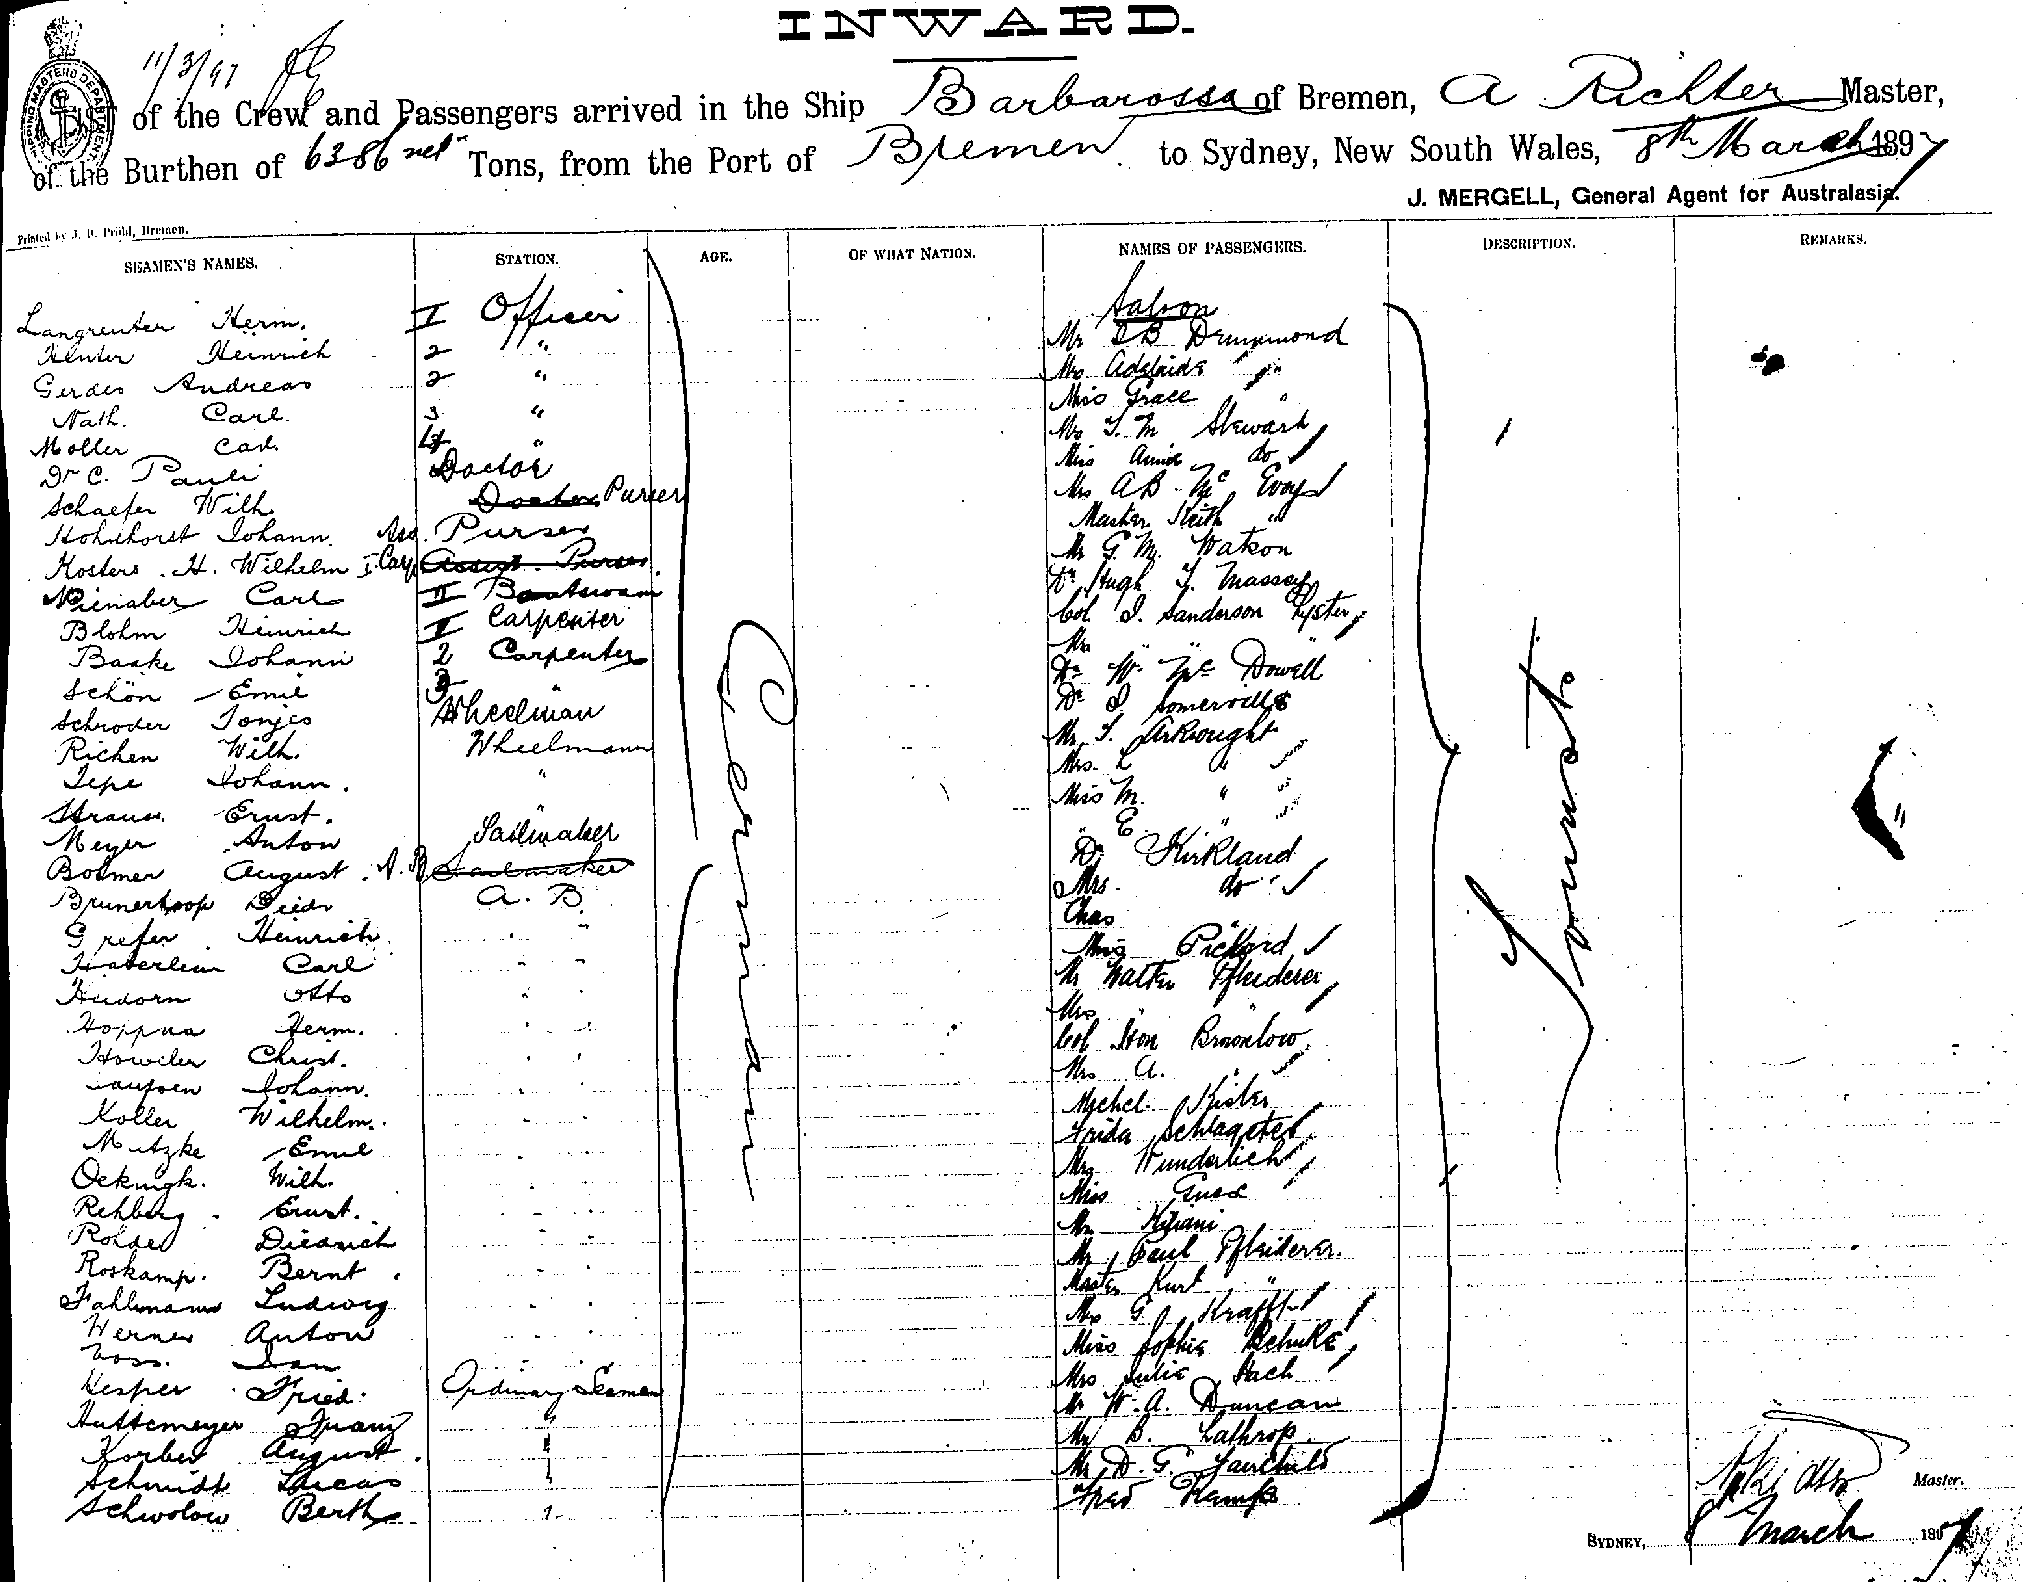 INWARD.
11/3/97
LIST of the Crew and Passengers arrived in the Ship Barbarossa of Bremen, A Richter Master,
of the Burthen of 6386 net Tons, from the Port of Bremen to Sydney, New South Wales, 8th March 1897
J. MERGELL, General Agent for Australasia.
Printed by J. D. Prühl, Bremen.
SEAMEN'S NAMES. STATION. AGE. OF WHAT NATION. NAMES OF PASSENGERS. DESCRIPTION. REMARKS.
Saloon
Langreuter Herm. I Officer Mr Drummond
Heinrich 2 " Mrs Adelaide "
Gerdes Andreas 2 " Miss Grace "
Nath. Carl 3 " Mrs Stewart
Moller Carl 4 " Miss Annie do
Dr C. Pauli Doctor Mrs AB McEvoy
Schaefer Wilh. Doctor Purser Master Keith "
Hohnhorst Johann. Ass. Purser Mr G. M. Watson
Kosters H. Wilhelm I Carp Assist. Purser Dr Hugh Massey
Nienaber Carl II Boatswain Col Sanderson Lyster
Blohm Heinrich Carpenter Mrs " "
Baake Johann 2 Carpenter Dr W. McDowell
Schön Emil 3 " Dr J Somerville
Schroder Tonjes Wheelman Mr Arkwright
Richen Wilh. Wheelmann Mrs. L "
Tepe Johann. " Miss M. "
Strauss Ernst. " " E. "
Meyer Anton Sailmaker Dr Kirkland
Bosmer August A.B. Sailmaker Mrs. do
Diedr A. B. Chas
Grefer Heinrich " Miss Pickford
Carl " Mr Walter Pfleiderer
Otto " Mrs "
Herm. " Col Hon Brownlow
Christ. " Mrs A. "
Johann. " Michel Kister
Koller Wilhelm. " Frida Schlageter
Mutzke Emil " Mr Wunderlich
Wilh. " Miss
Rehberg Ernst. " Mr Kiliani
Rohde Diedrich " Mr Paul Pfleiderer
Roskamp. Bernt " Master Kurt "
Fahlmann Ludwig " Mr G. Krafft
Werner Anton " Miss Sophie
Voss. Jan " Mrs Julie Hach
Hesper Fried. Ordinary Seamen Mr W. A. Duncan
Huttemeyer Franz " Mr B. Lathrop
Korber August " Mr D. G. Fairchild
Schmidt Lucas " Fred Kemp
Schwolow Berth "
German
Tourists
Master.
SYDNEY, 8 March 1897